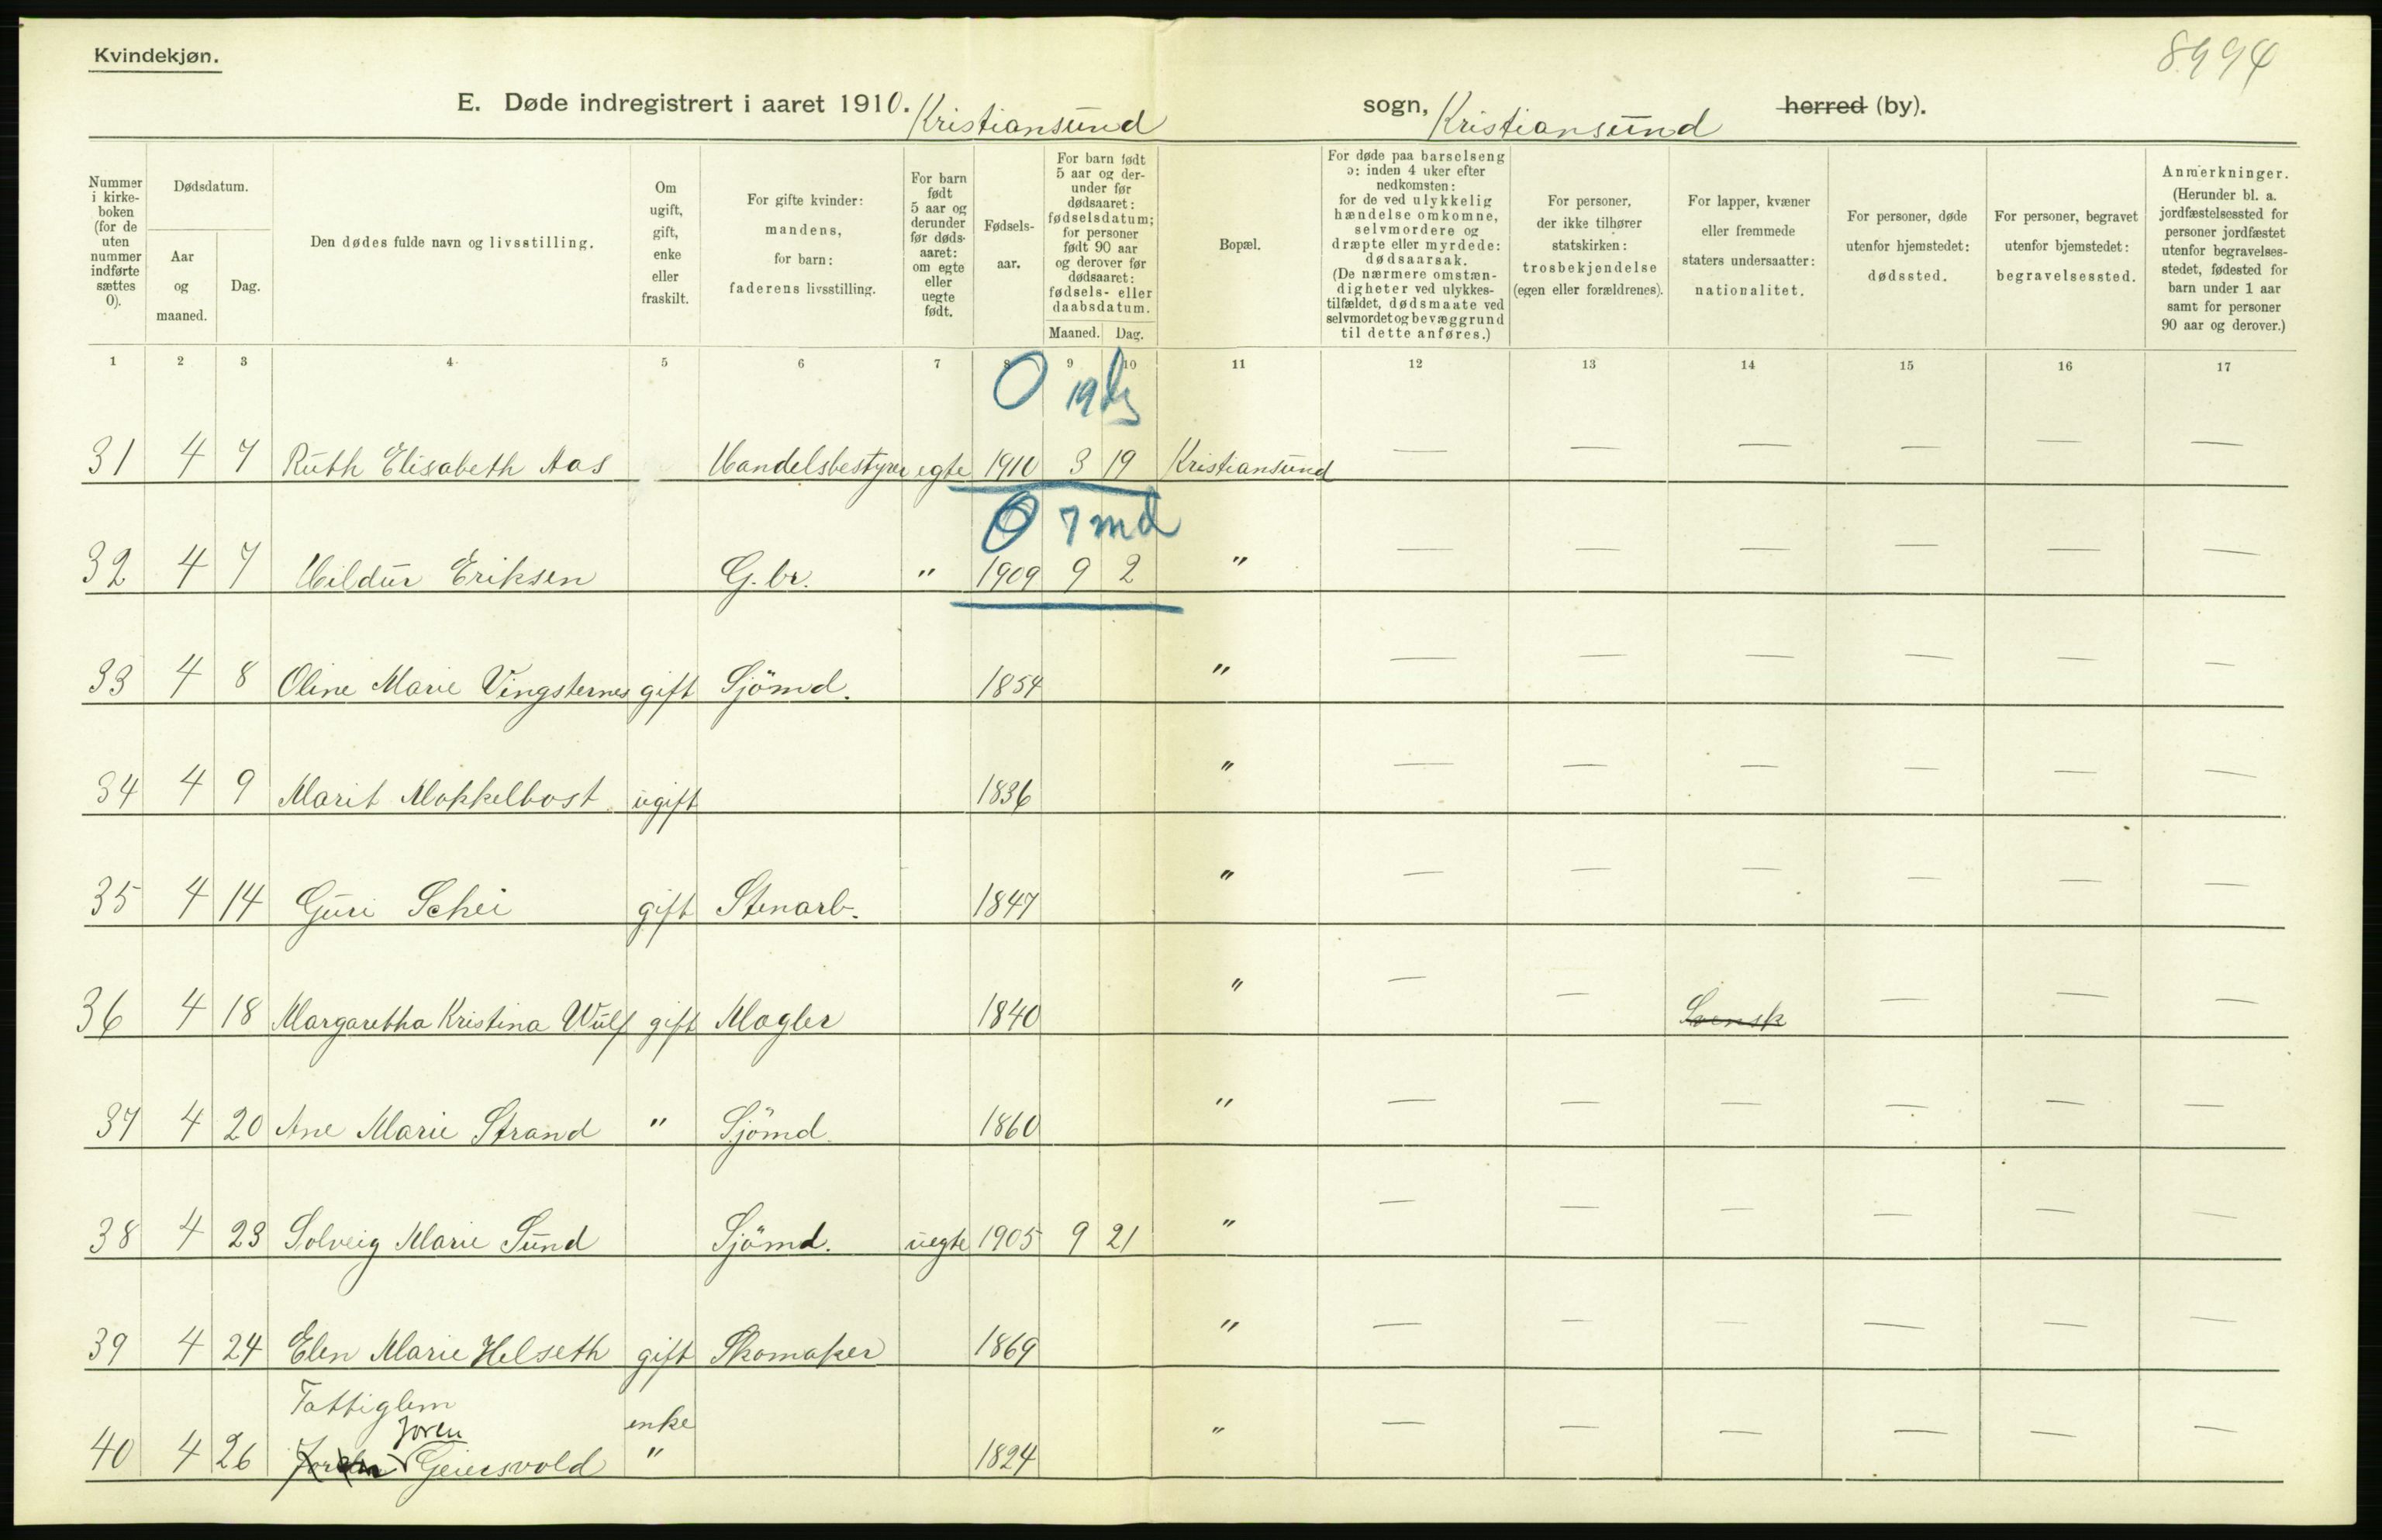 Kvindekjøn.
8994
E. Døde indregistrert i aaret 1910. Kristiansund sogn, Kristiansund herred (by).
Nummer i kirke-boken (for de uten nummer indførte sættes 0).
Dødsdatum.
Aar og maaned.
Dag.
Den dødes fulde navn og livsstilling.
Om ugift, gift, enke eller fraskilt.
For gifte kvinder: mandens, for barn: faderens livsstilling.
For barn født 5 aar og derunder før døds-aaret: om egte eller uegte født.
Fødsels-aar.
For barn født 5 aar og der-under før dødsaaret: fødselsdatum; for personer født 90 aar og derover før dødsaaret: fødsels- eller daabsdatum.
Maaned. Dag.
Bopæl.
For døde paa barselseng ɔ: inden 4 uker efter nedkomsten: for de ved ulykkelig hændelse omkomne, selvmordere og dræpte eller myrdede: dødsaarsak. (De nærmere omstæn-digheter ved ulykkes-tilfældet, dødsmaate ved selvmordet og bevæggrund til dette anføres.)
For personer, der ikke tilhører statskirken: trosbekjendelse (egen eller forældrenes).
For lapper, kvæner eller fremmede staters undersaatter: nationalitet.
For personer, døde utenfor hjemstedet: dødssted.
For personer, begravet utenfor hjemstedet: begravelsessted.
Anmerkninger. (Herunder bl. a. jordfæstelsessted for personer jordfæstet utenfor begravelses-stedet, fødested for barn under 1 aar samt for personer 90 aar og derover.)
1 2 3 4 5 6 7 8 9 10 11 12 13 14 15 16 17
0 19 dg
31 4 7 Ruth Elisabeth Aas Handelsbestyrer egte 1910 3 19 Kristiansund — — — — — —
0 7 md
32 4 7 Hildur Eriksen G.br. " 1909 9 2 " — — — — — —
33 4 8 Oline Marie Vingsternes gift Sjömd. 1854 " — — — — — —
34 4 9 Marit Mokkelbost ugift 1836 " — — — — — —
35 4 14 Guri Schei gift Stenarb. 1847 " — — — — — —
36 4 18 Margaretha Kristina Wulf gift Mægler 1840 " — — Svensk — — —
37 4 20 Ane Marie Strand " Sjömd. 1860 " — — — — — —
38 4 23 Solveig Marie Sund Sjömd. uegte 1905 9 21 " — — — — — —
39 4 24 Elen Marie Helseth gift Skomaker 1869 " — — — — — —
Fattiglem enke
Joren
40 4 26 Geiesvold " 1824 " — — — — — —